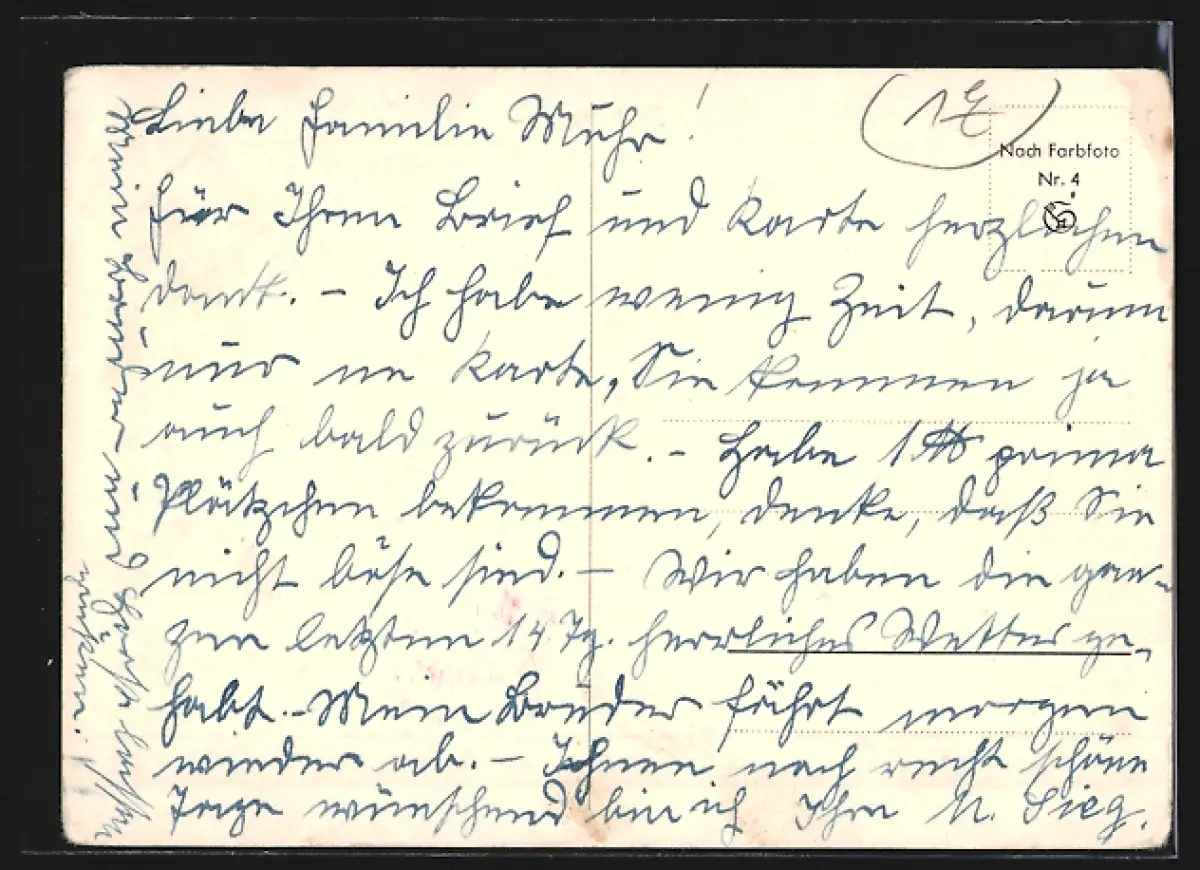 Liebe Familie Muhr!
Für Ihren Brief und Karte herzlichen
Dank. - Ich habe wenig Zeit, darum
nur ne Karte, Sie kommen ja
auch bald zurück. - Habe 1 ℔ prima
Plätzchen bekommen, denke, daß Sie
nicht böse sind. - Wir haben die gan-
zen letzten 14 Tg. herrliches Wetter ge-
habt. - Mein Bruder fährt morgen
wieder ab. - Ihnen noch recht schöne
Tage wünschend bin ich Ihre M. Sieg.
Mein Bruder und
grüßen!
Nach Farbfoto
Nr. 4